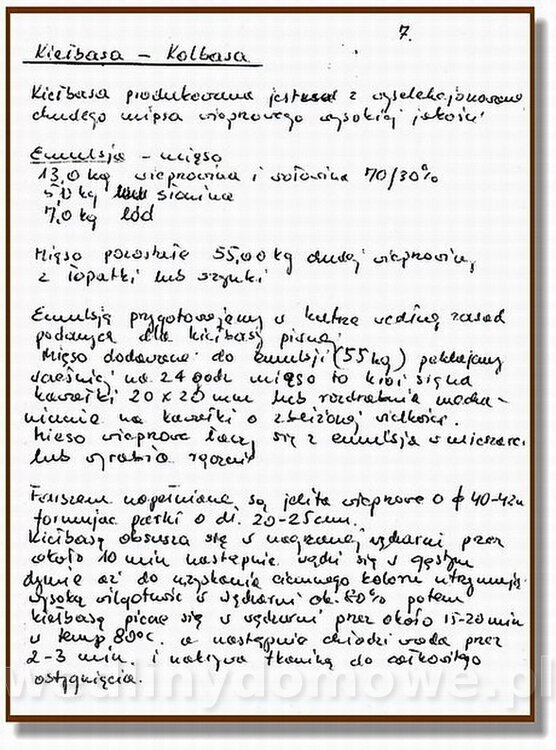 7.
Kiełbasa - Kolbasa
Kiełbasa produkowana jest z wyselekcjonowanego
chudego mięsa wieprzowego wysokiej jakości
Emulsja - mięso
13,0 kg wieprzowina i wołowina 70/30%
5,0 kg słonina
7,0 kg lód
Mięso pozostałe 55,00 kg chudej wieprzowiny
z łopatki lub szynki
Emulsję przygotowujemy w kutrze według zasad
podanych dla kiełbasy
Mięso dodawane do emulsji (55 kg) peklujemy
wcześniej na 24 godz mięso to kroi się na
kawałki 20 x 20 mm lub rozdrabnia mecha-
nicznie na kawałki o zbliżonej wielkości.
Mięso wieprzowe łączy się z emulsją w mieszarce
lub wyrabia ręcznie
Farszem napełniane są jelita wieprzowe o ϕ 40-42
formując parki o dł. 20-25cm.
Kiełbasę obsusza się w nagrzanej wędzarni przez
około 10 min następnie wędzi się w gęstym
dymie aż do uzyskania ciemnego koloru utrzymując
wysoką wilgotność w wędzarni ok. 80% potem
kiełbasę piecze się w wędzarni przez około 15-20 min
w temp 80°c. a następnie chłodzi woda przez
2-3 min. i nakrywa tkaniną do całkowitego
ostygnięcia.
wedlinydomowe.pl